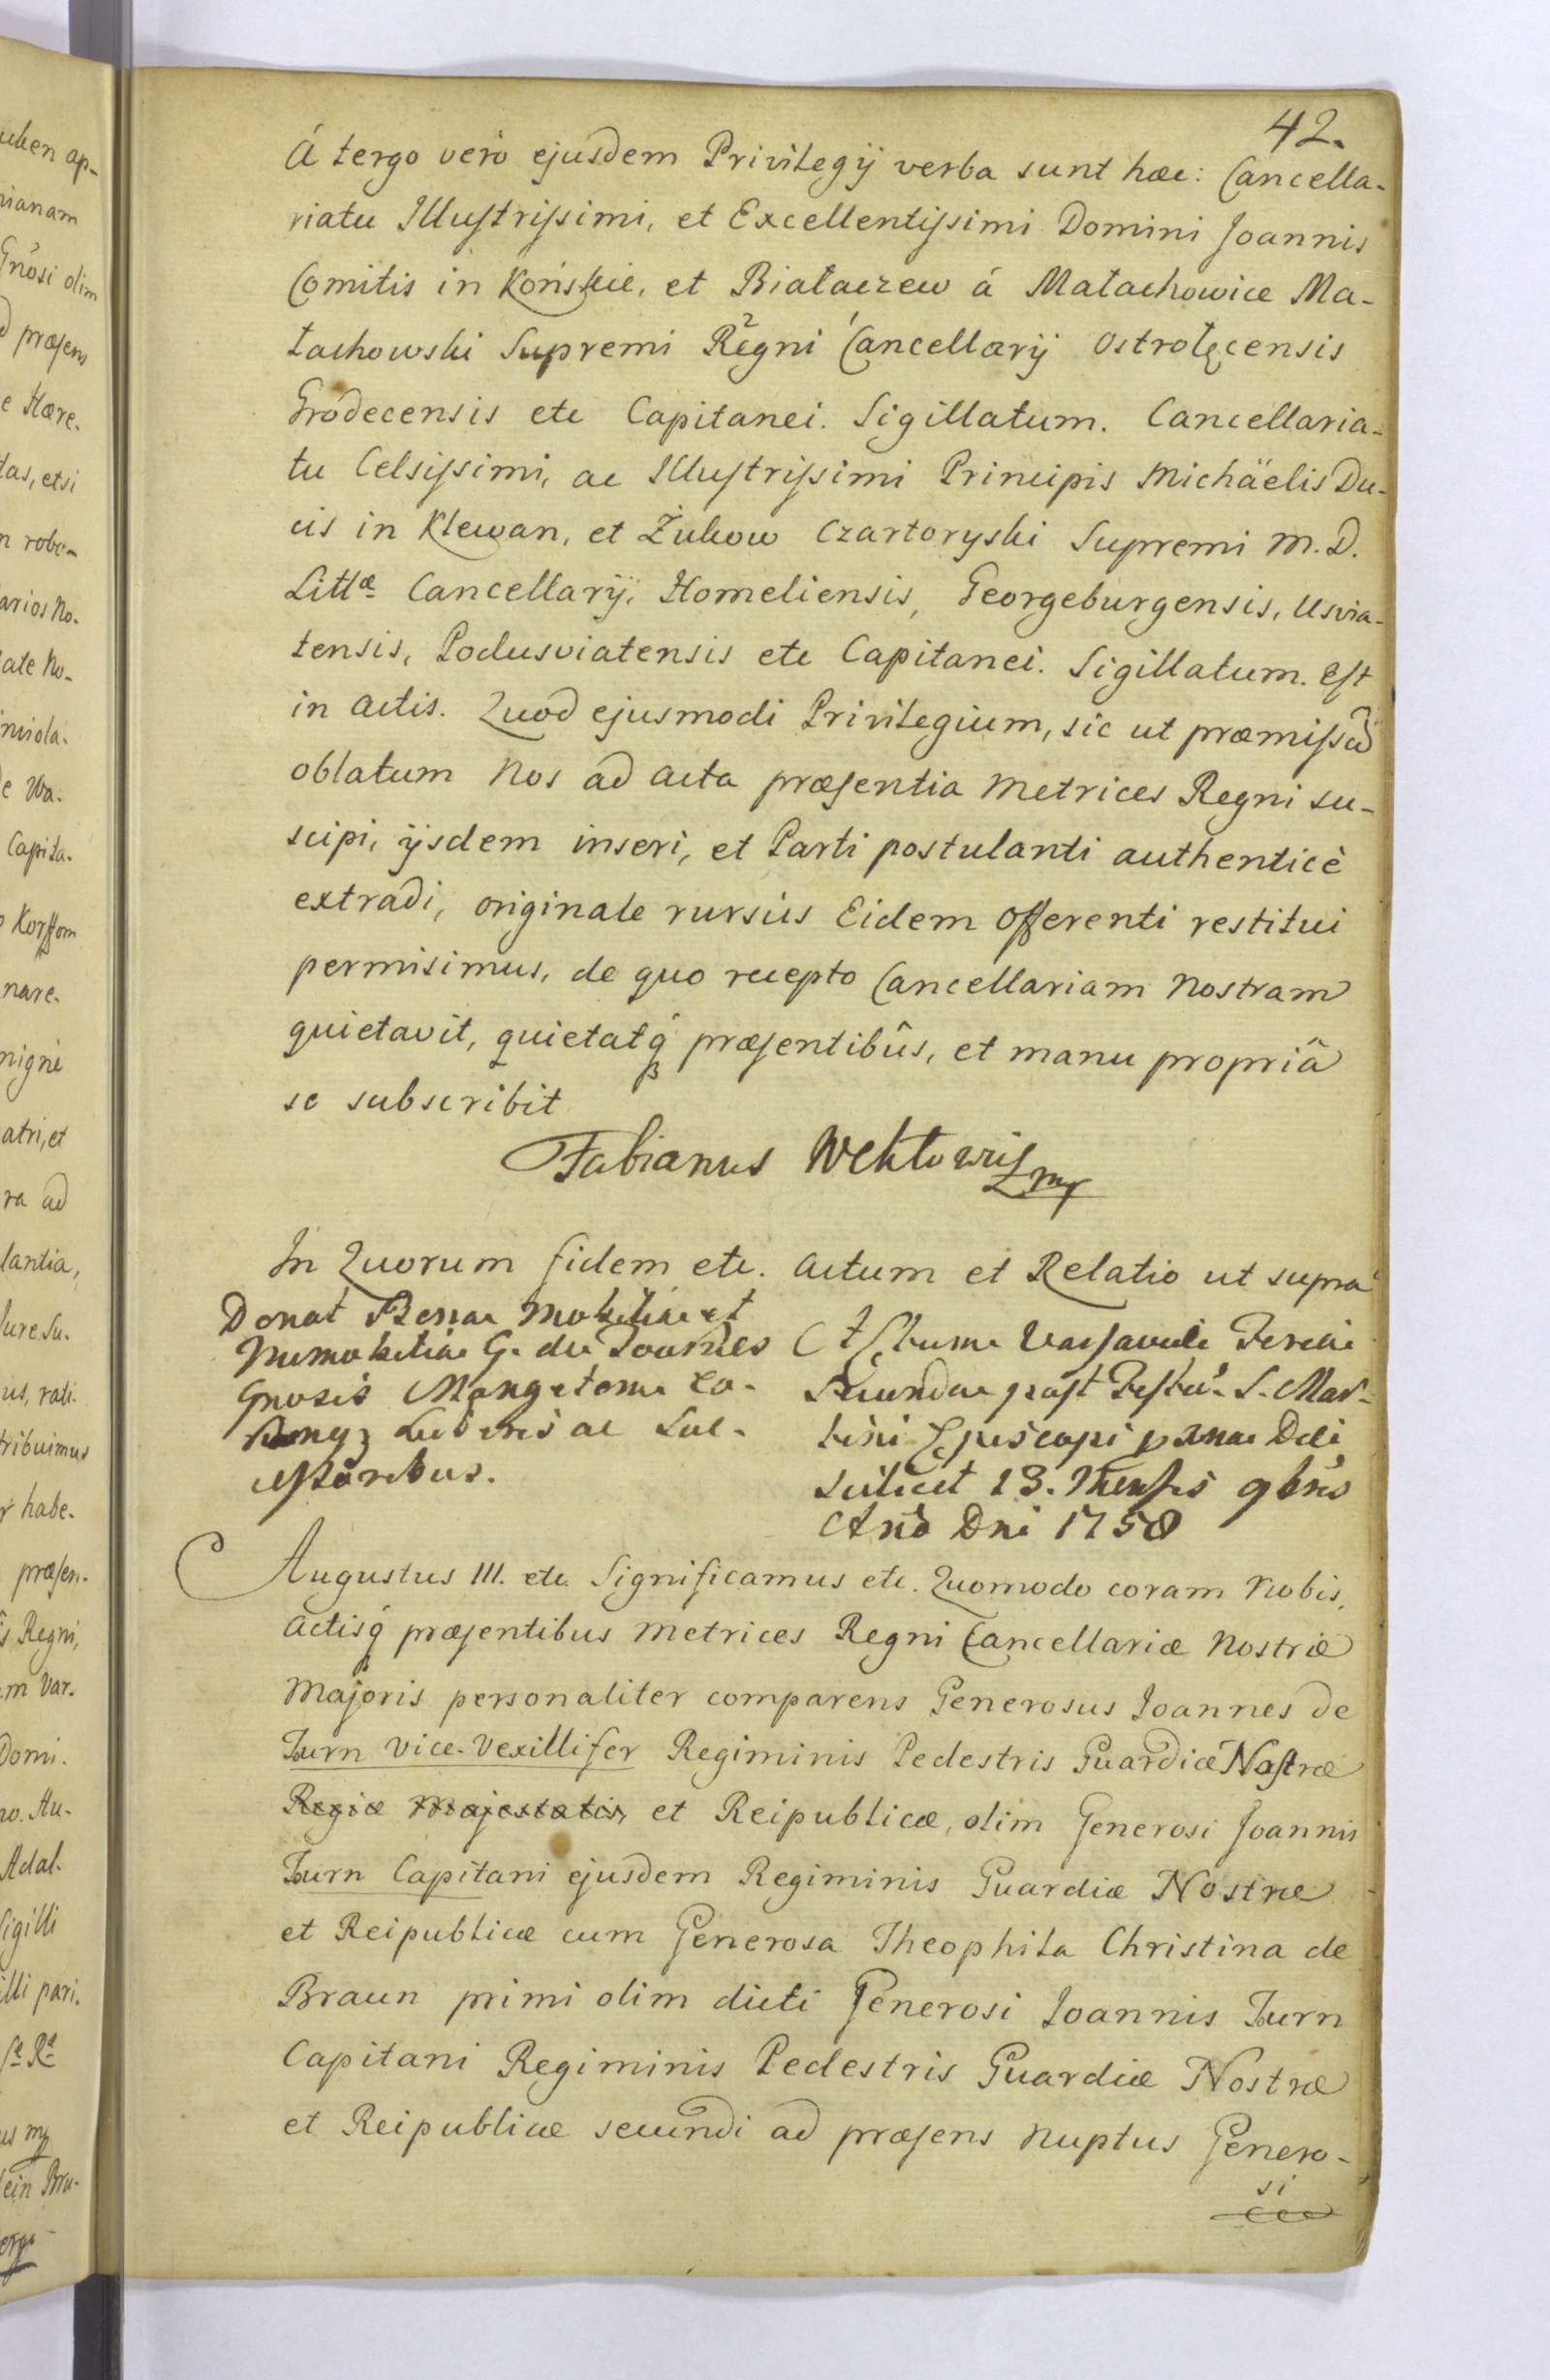 42.
á tergo verò ejusdem Privilegij verba sunt hæc: Cancella-
riatu Illustrissimi, et Excellentissimi Domini Joannis
Comitis in Końskie, et Białaczew á Małachowice Ma-
łachowski Supremi Regni Cancellarij Ostrołęcensis
Grodecensis etc Capitanei. Sigillatum. Cancellaria-
tu Celsissimi, ac Illustrissimi Principis Michäelis Du-
cis in Klewan, et Żukow Czartoryski Supremi M.D.
Littæ Cancellarij, Homeliensis, Georgeburgensis, Usvia-
tensis, Podusviatensis etc Capitanei. Sigillatum. Est
in actis. Quod ejusmodi Privilegium, sic ut præmissũ
oblatum Nos ad acta præsentia Metrices Regni su-
scipi, ijsdem inseri, et Parti postulanti authenticè
extradi, originale rursùs Eidem Offerenti restitui
permisimus, de quo recepto Cancellariam Nostram
quietavit, quietatq́ præsentibûs, et manu propriâ
se subscribit
Fabianus Wektowicz mp
In Quorum fidem etc. Actum et Relatio ut supra
Donat Bona Mobilia et
Immobilia G. de Tournes
Gnosis Mangetom Co-
njug Liberis ac Suc-
cessoribus.
Actum Varsaviæ Feria
Secunda post Festu. S. Mar-
tini Episcopi pxma Die
scilicet 13. Mensis 9bris
Anô Dni 1758
Augustus III. etc Significamus etc. Quomodo coram Nobis,
Actisq́ præsentibus Metrices Regni Cancellariæ Nostræ
Majoris personaliter comparens Generosus Joannes de
Turn Vice-Vexillifer Regiminis Pedestris Guardiæ Nostræ
Regiæ Majestatis, et Reipublicæ, olim Generosi Joannis
Turn Capitani ejusdem Regiminis Guardiæ Nostræ
et Reipublicæ cum Generosa Theophila Christina de
Braun primi olim dicti Generosi Joannis Turn
Capitani Regiminis Pedestris Guardiæ Nostræ
et Reipublicæ secundi ad præsens nuptus Genero-
si